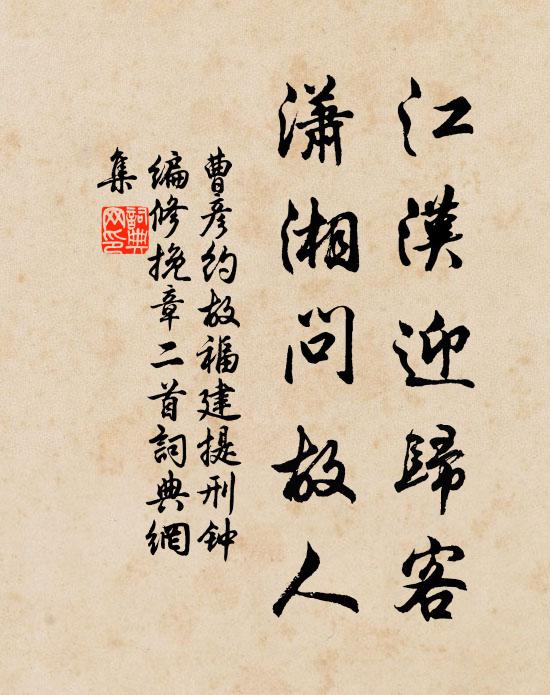 江漢迎歸客
瀟湘問故人
曹彦約故福建提刑鈡
編修挽章二首詞典網
集
詞典
网印